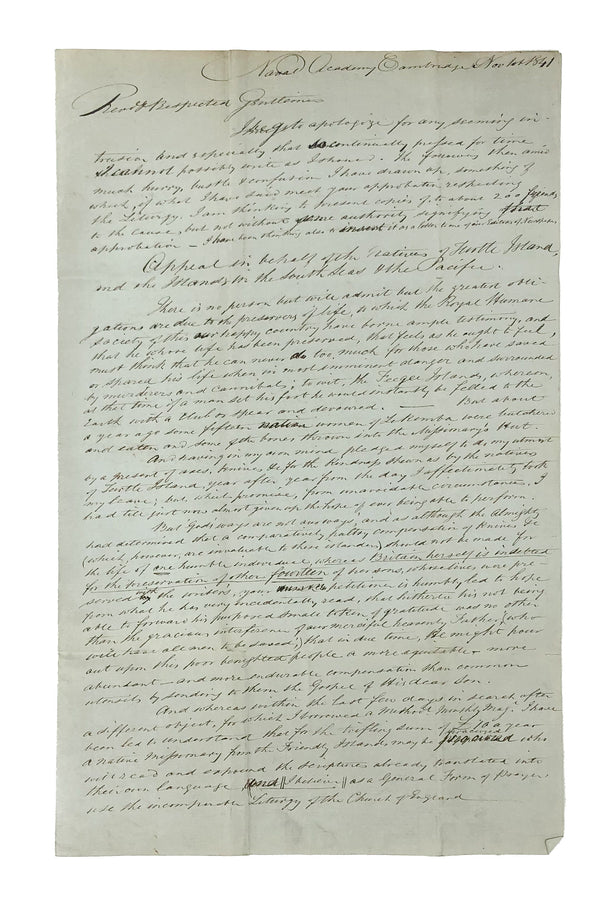 Naval Academy Cambridge Nov 1st 1841
Revd & Respected Gentlemen
I beg to apologize for any seeming in-
trusion and especially that so continually pressed for time
I cannot possibly write as I should. The following then amid
much hurry, bustle & confusion I have drawn up, something of
which, if what I have said meet your approbation respecting
the Liturgy, I am thinking to present copies of to about 200 friends
to the cause, but not without some authority signifying that
approbation — I have been thinking also to insert it as a letter to one of your Editors of Newspapers
Appeal in behalf of the Natives of Turtle Island,
and the Islands in the South Seas & the Pacific.
There is no person but will admit but the greatest obli-
gations are due to the preservers of life, to which the Royal Humane
Society of this our happy country have borne ample testimony, and
that he whose life has been preserved, that feels as he ought to feel,
must think that he can never do too much for those who have saved
or spared his life when in most imminent danger and surrounded
by murderers and cannibals; to wit, the Feegee Islands, whereon,
at that time if a man set his foot he would instantly be felled to the
Earth with a Club or spear and devoured. — But about
a year ago some fifteen native women of Lakemba were butchered
and eaten and some of the bones thrown into the Missionary's Hut.
And having in my own mind pledged myself to do my utmost
by a present of axes, knives, &c for the kindness shown us by the natives
of Turtle Island year after year from the day I affectionately took
my leave; but, which promise, from unavoidable circumstances, I
had till just now almost given up the hope of ever being able to perform.
But God's ways are not our ways, and as although the Almighty
had determined that a comparatively paltry compensation of Knives, &c
(which, however, are invaluable to these islanders) should not be made for
the life of one humble individual, whereas Britain herself is indebted
for the preservation of other fourteen of persons, whose lives were pre-
served with the widows, your petitioner is humbly led to hope
from what he has very incidentally read, that hitherto his not being
able to forward his purposed small token of gratitude was no other
than the gracious interference of our merciful heavenly Father, (who
wills have all men to be saved;) that in due time, He might pour
out upon this poor benighted people a more equitable — more
abundant — and more endurable compensation than common
utensils by sending to them the Gospel of his dear Son.
And whereas within the last few days in search after
a different object, for which I borrowed a Methodist Monthly Mag: I have
been led to understand that for the trifling sum of £10 a year
a native Missionary from the Friendly Islands may be procured who
will read and expound the Scriptures already translated into
their own language and I believe as a General Form of Prayer,
use the incomparable Liturgy of the Church of England